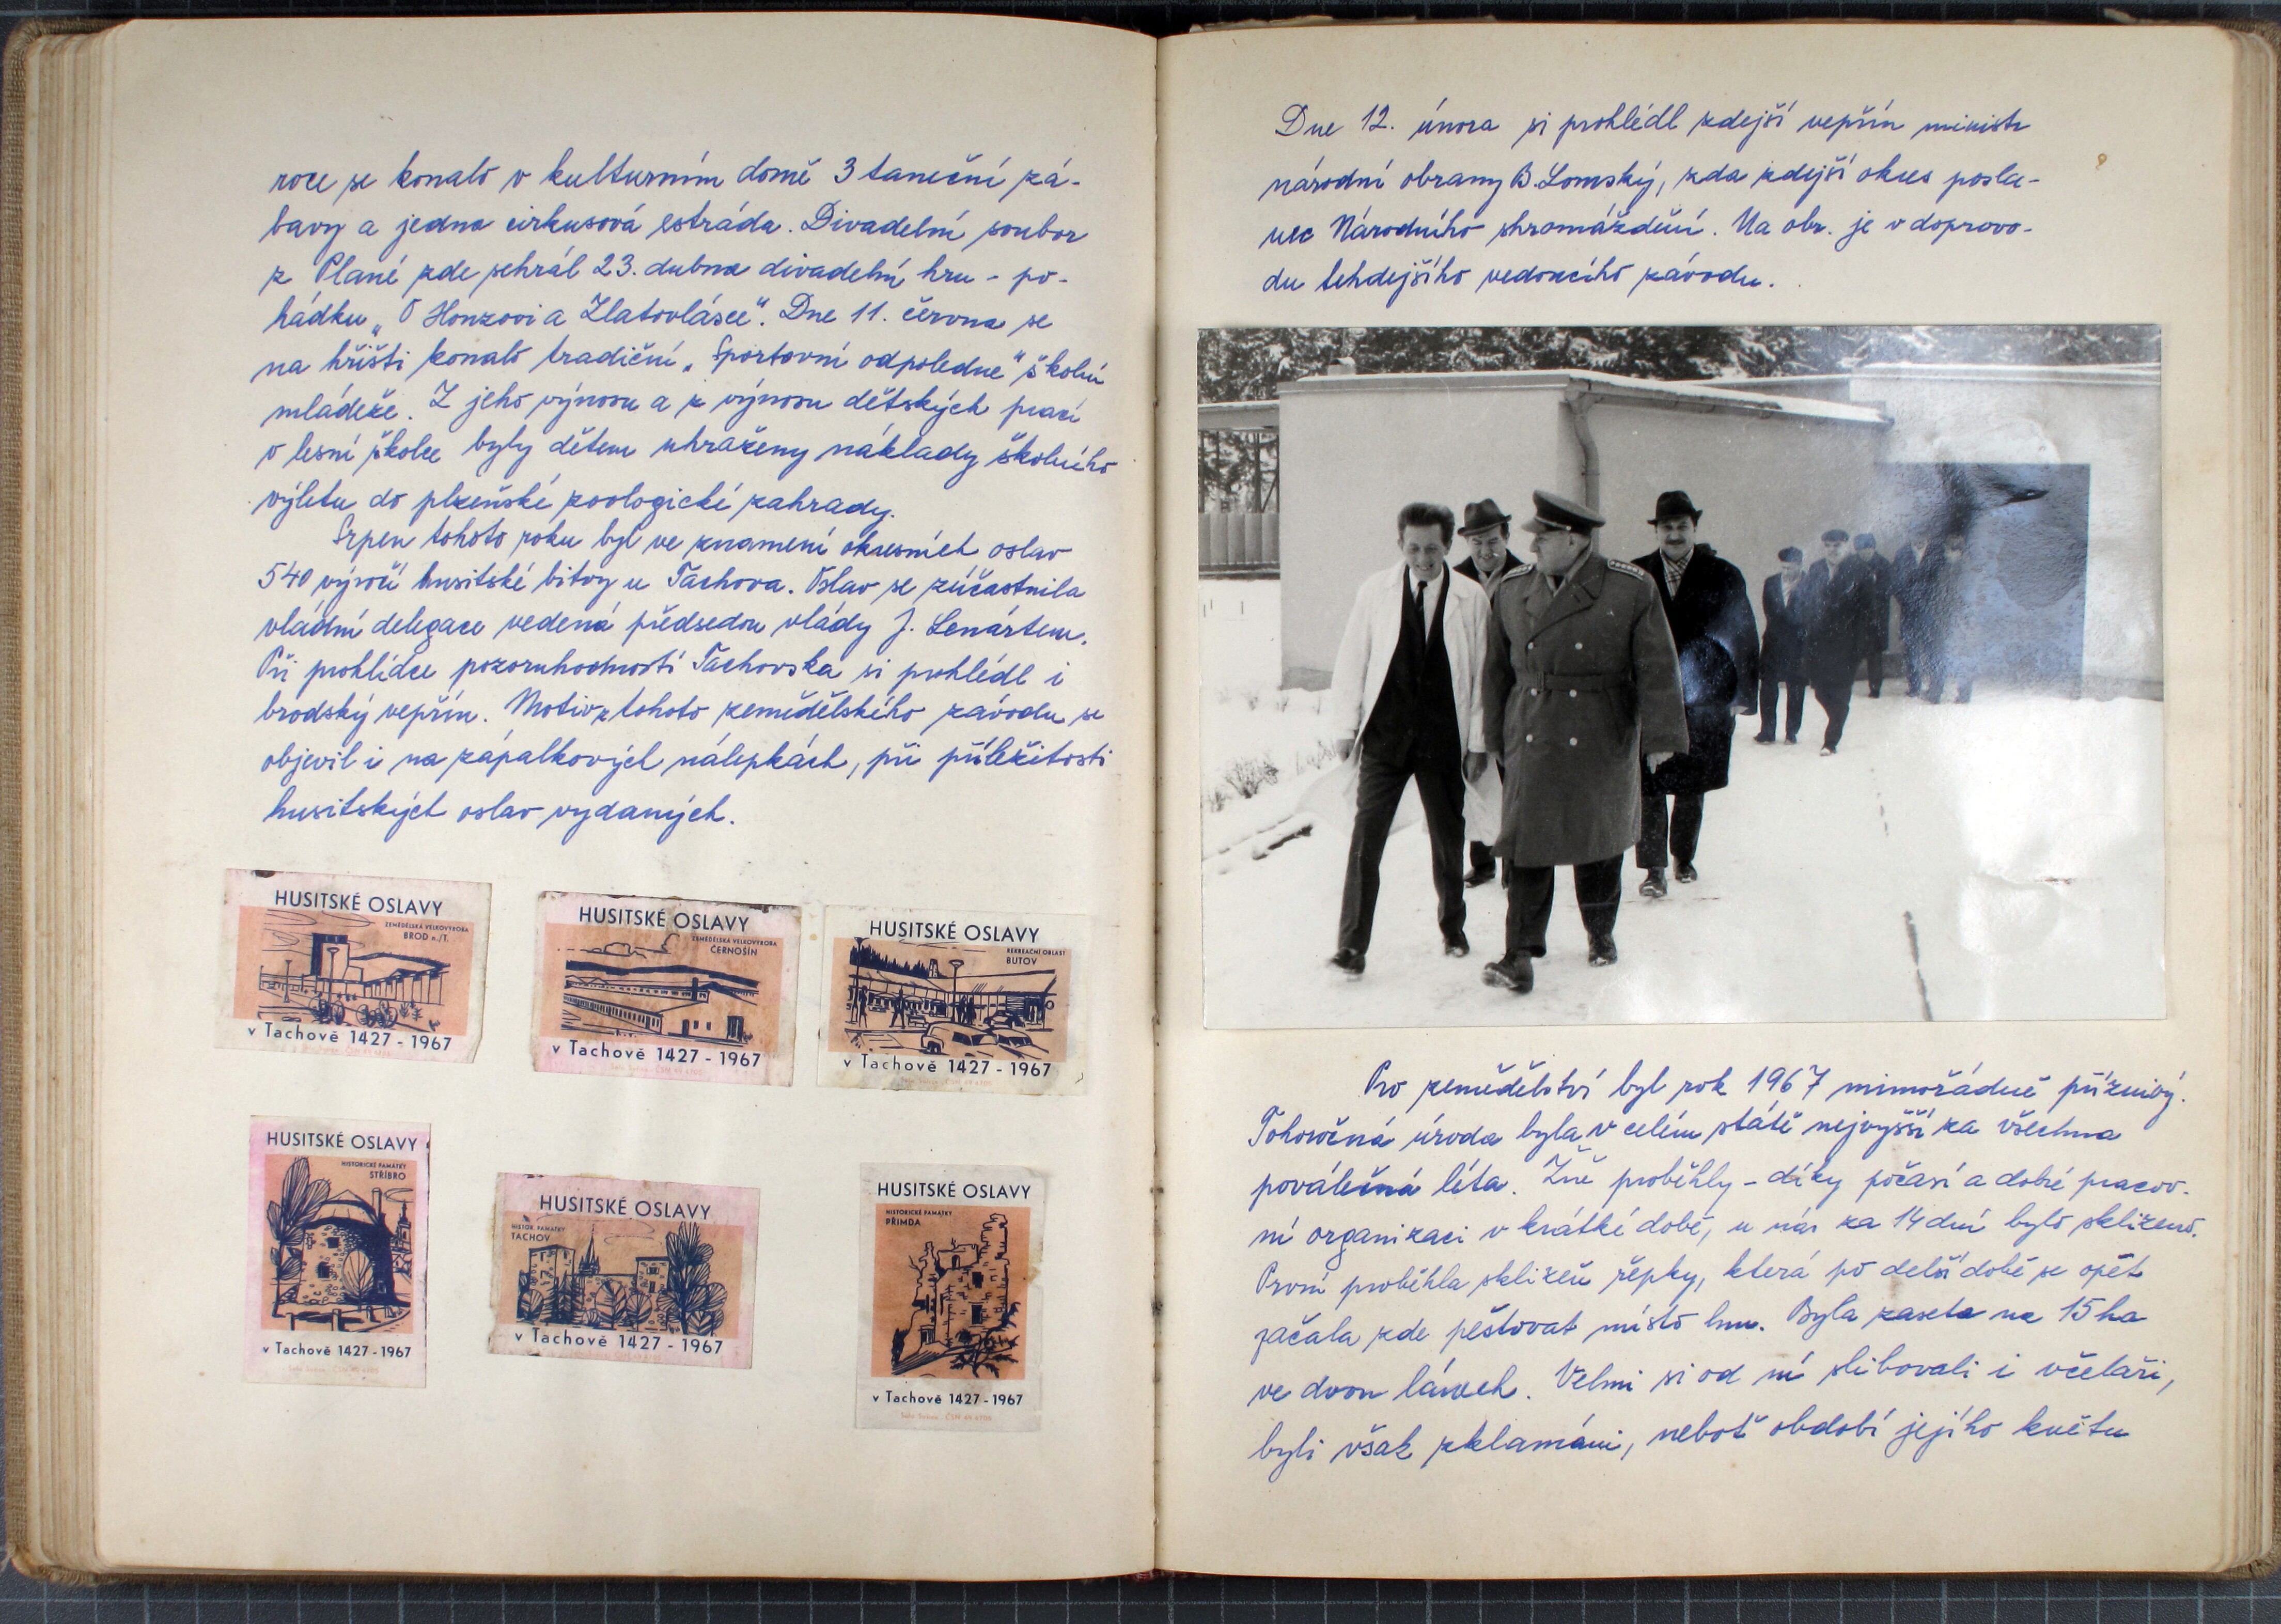 roce se konalo v kulturním domě 3 taneční zá-
bavy a jedna cirkusová estráda. Divadelní soubor
z Plané zde sehrál 23. dubna divadelní hru - po-
hádku „O Honzovi a Zlatovlásce“. Dne 11. června se
na hřišti konalo tradiční „Sportovní odpoledne“ školní
mládeže. Z jeho výnosu a z výnosu dětských prací
v lesní školce byly dětem uhrazeny náklady školního
výletu do plzeňské zoologické zahrady.
Srpen tohoto roku byl ve znamení okresních oslav
540 výročí husitské bitvy u Tachova. Oslav se zúčastnila
vládní delegace vedená předsedou vlády J. Lenártem.
Při prohlídce pozoruhodností Tachovska si prohlédl i
brodský vepřín. Motiv z tohoto zemědělského závodu se
objevil i na zápalkových nálepkách, při příležitosti
husitských oslav vydaných.
HUSITSKÉ OSLAVY
ZEMĚDĚLSKÁ VELKOVÝROBA
BROD n./T.
v Tachově 1427 - 1967
HUSITSKÉ OSLAVY
ZEMĚDĚLSKÁ VELKOVÝROBA
ČERNOŠÍN
v Tachově 1427 - 1967
HUSITSKÉ OSLAVY
REKREAČNÍ OBLAST
BUTOV
v Tachově 1427 - 1967
HUSITSKÉ OSLAVY
HISTORICKÉ PAMÁTKY
STŘÍBRO
v Tachově 1427 - 1967
HUSITSKÉ OSLAVY
HISTOR. PAMÁTKY
TACHOV
v Tachově 1427 - 1967
HUSITSKÉ OSLAVY
HISTORICKÉ PAMÁTKY
PŘIMDA
v Tachově 1427 - 1967
Dne 12. února si prohlédl zdejší vepřín ministr
národní obrany B. Lomský, zda zdejší okres posla-
nec Národního shromáždění. Na obr. je v doprovo-
du tehdejšího vedoucího závodu.
Pro zemědělství byl rok 1967 mimořádně příznivý.
Tohoročná úroda byla v celém státě nejvyšší za všechna
poválečná léta. Žně proběhly - díky počasí a dobré pracov-
ní organizaci v krátké době, u nás za 14 dní bylo sklizeno.
První proběhla sklizeň řepky, která po delší době se opět
začala zde pěstovat místo lnu. Byla zaseta na 15 ha
ve dvou lánech. Velmi si od ní slibovali i včelaři,
byli však zklamáni, neboť období jejího květu